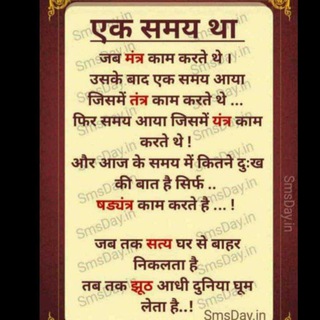 एक समय था
जब मंत्र काम करते थे ।
उसके बाद एक समय आया
जिसमें तंत्र काम करते थे ...
फिर समय आया जिसमें यंत्र काम
करते थे !
और आज के समय में कितने दुःख
की बात है सिर्फ ..
षड्यंत्र काम करते है ... !
जब तक सत्य घर से बाहर
निकलता है
तब तक झूठ आधी दुनिया घूम
लेता है..!
SmsDay.in
SmsDay.in